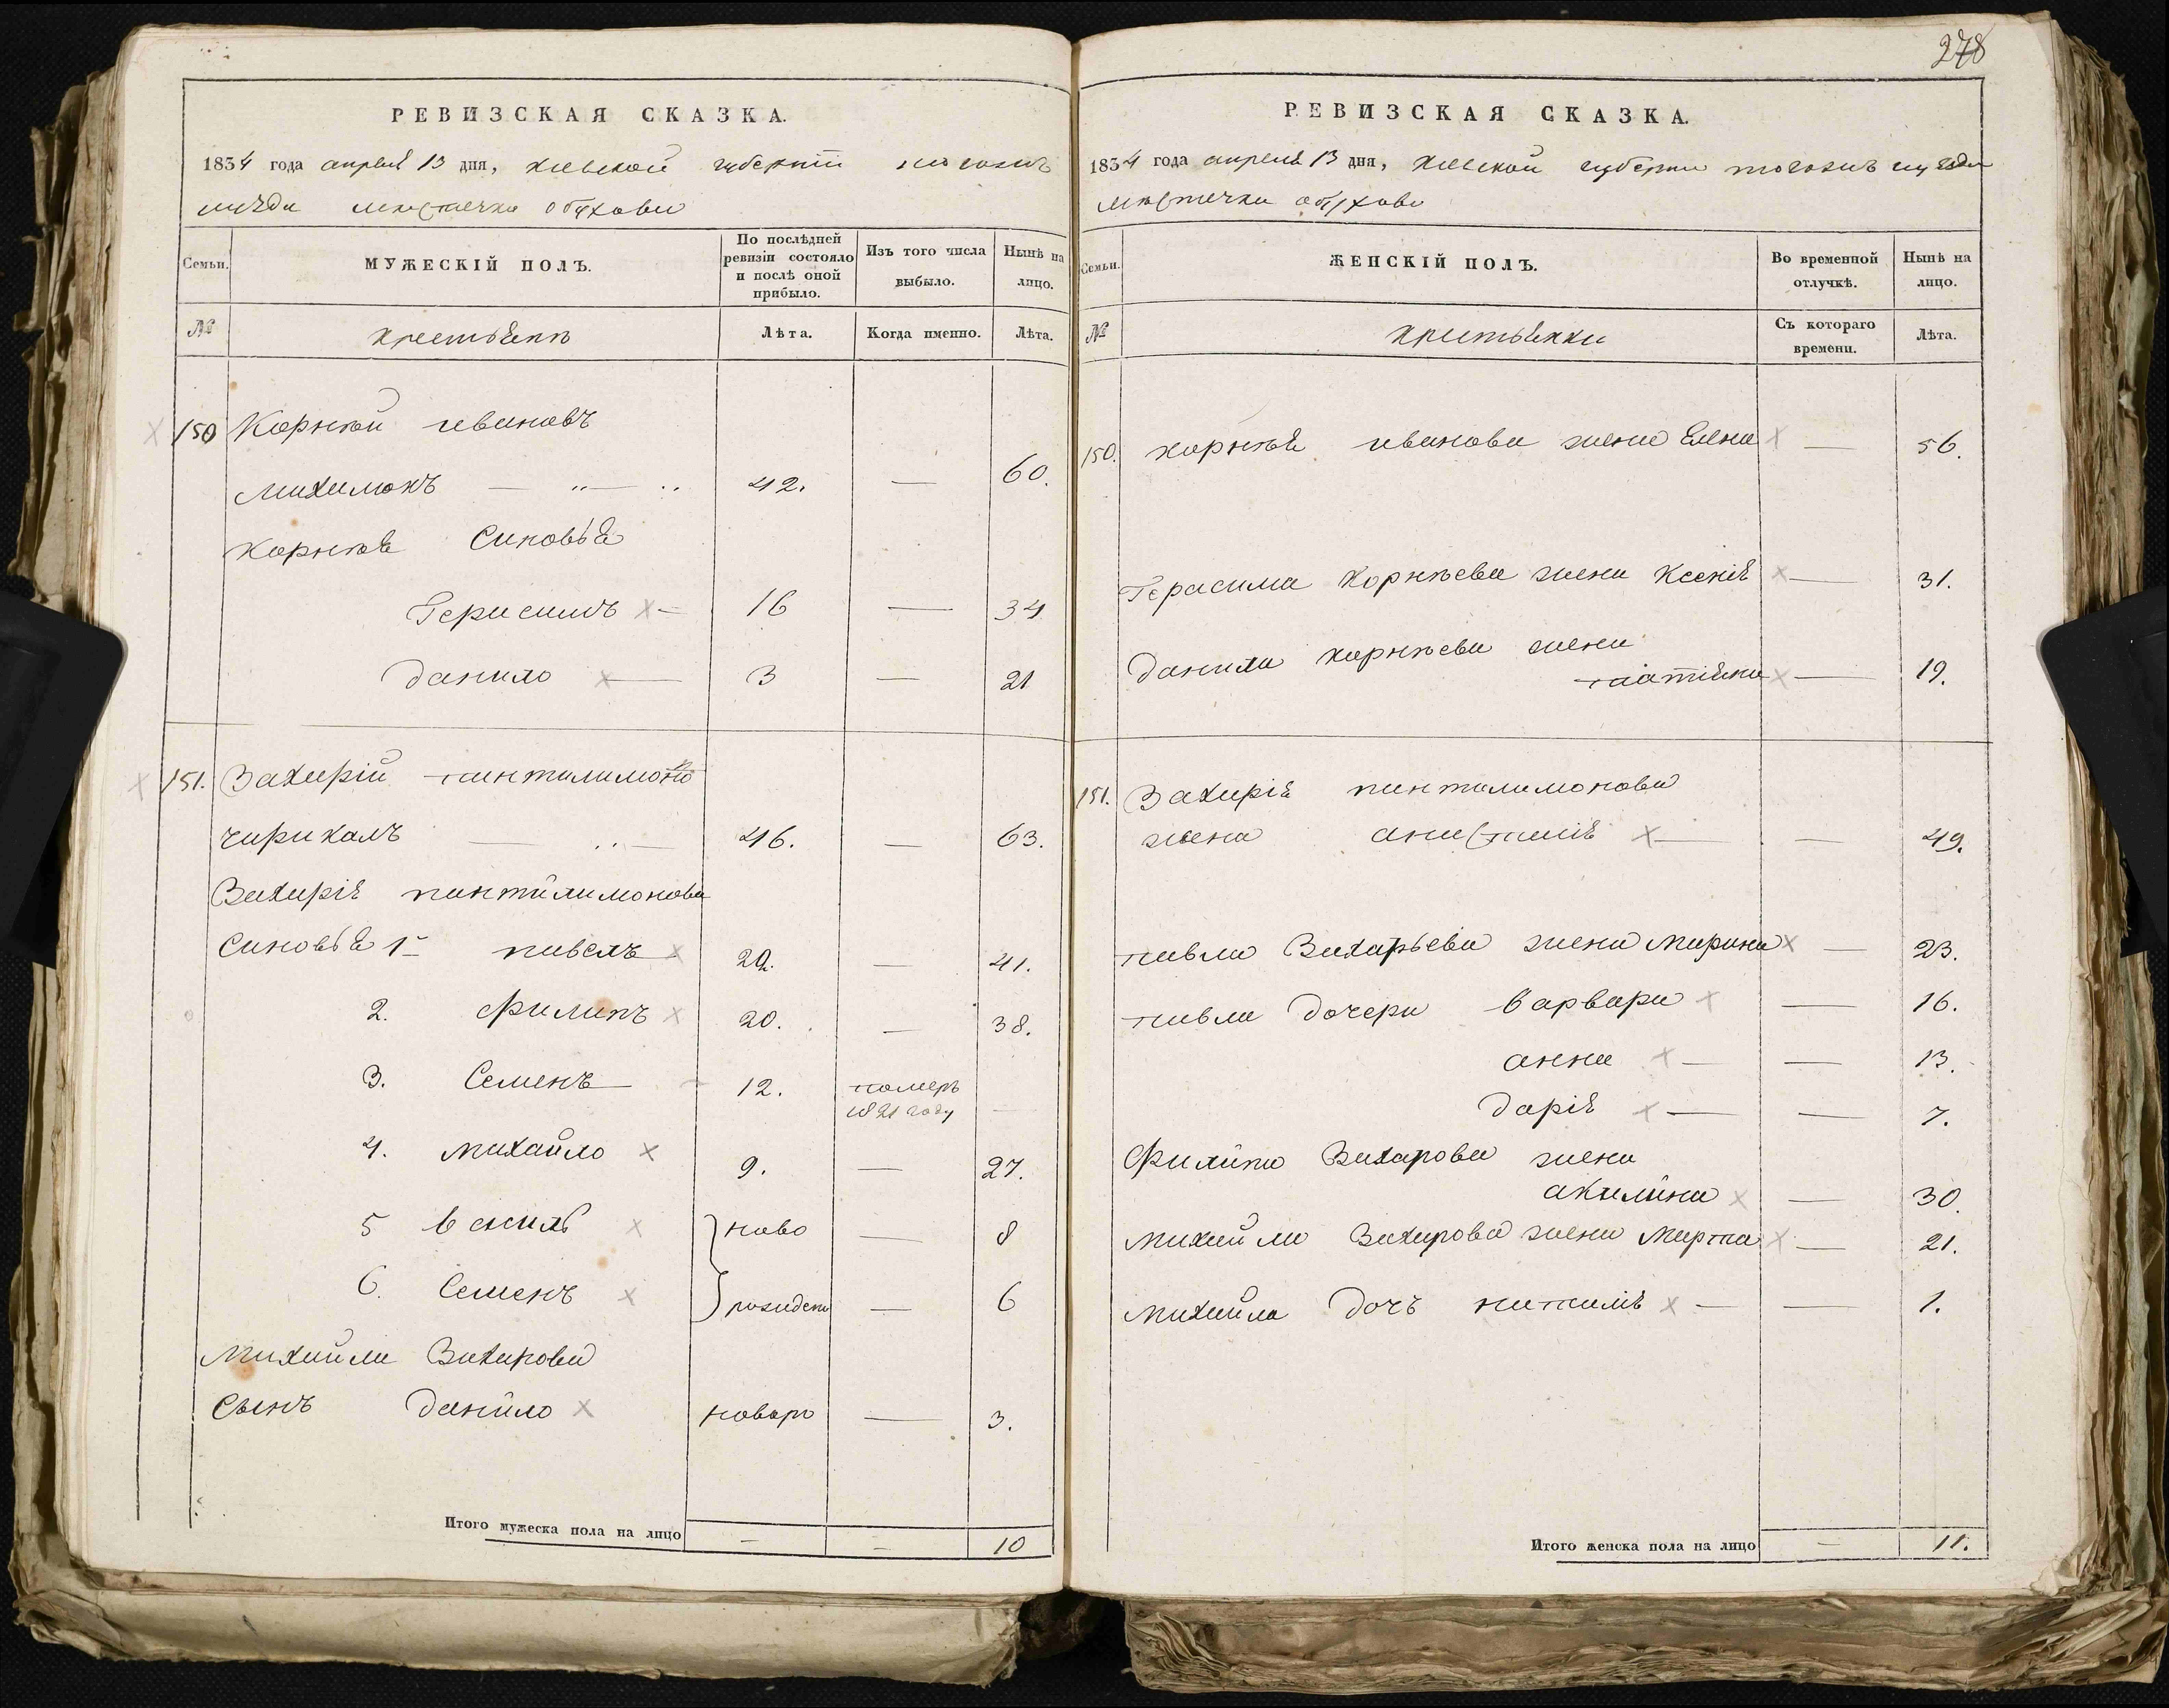 РЕВИЗСКАЯ СКАЗКА.
1834 года апреля 13 дня, киевской губернiи тогожъ
уезда местечка обухова
Семьи.
МУЖЕСКІЙ ПОЛЪ.
По послѣдней ревизіи состояло и послѣ оной прибыло.
Изъ того числа выбыло.
Нынѣ на лицо.
№
крестьяне
Лѣта.
Когда именно.
Лѣта.
150 Корнѣй ивановъ
михимокъ — 42. — 60.
Корнѣя Синовья
Герасимъ — 16 — 34
данило — 3 — 21
151. Захарій пантилимоно
чирикалъ — 46. — 63.
Захарія пантилимонова
Синовья 1й павелъ — 20. — 41.
2. Филипъ 20. — 38.
3. Семенъ — 12. померъ
1821 году —
4. михайло 9. — 27.
5 василь ново — 8
6. Семенъ рожидени — 6
михайла Захарова
Сынъ данило новоро — 3.
Итого мужеска пола на лицо — — 10
278
РЕВИЗСКАЯ СКАЗКА.
1834 года апреля 13 дня, киевской губернии тогожъ уезда
местечка обухова
Семьи.
ЖЕНСКІЙ ПОЛЪ.
Во временной отлучкѣ.
Нынѣ на лицо.
№
крестьянки
Съ котораго времени.
Лѣта.
150. корнѣя иванова жена Елена — 56.
Герасима корнѣева жена Ксенія — 31.
данила корнѣева жена
татіяна — 19.
151. Захарія пантилимонова
жена анастасія — — 49.
павла Захарьева жена марина — 23.
павла дочери варвара — 16.
анна — — 13.
дарія — — 7.
Филипа Захарова жена
акилина — 30.
михайла Захарова жена марта — 21.
михайла дочъ наталія — — 1.
Итого женска пола на лицо — 11.